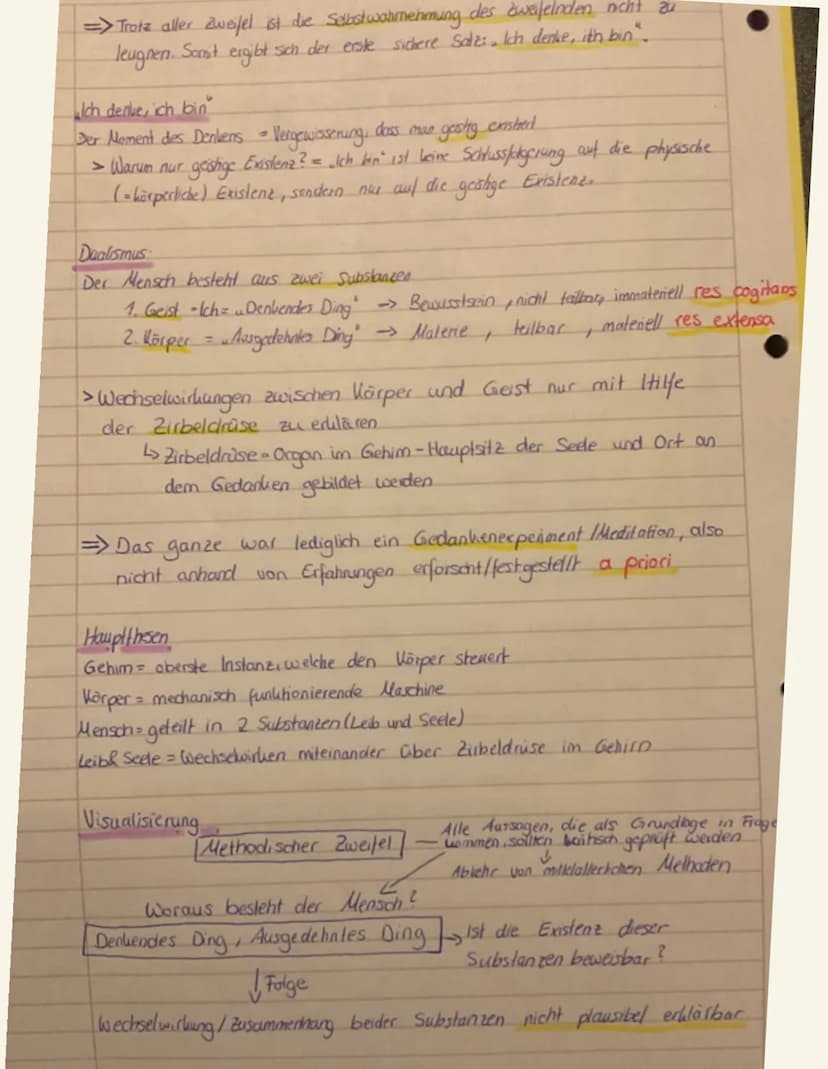 => Trotz aller Zweifel ist die Selbstwahrnehmung des Zweifelnden nicht zu
leugnen. Somit ergibt sich der erste sichere Satz: „Ich denke, ich bin".
„Ich denke, ich bin"
Der Moment des Denkens = Vergewisserung, dass man geistig existiert
> Warum nur geistige Existenz? = „Ich bin" ist keine Schlussfolgerung auf die physische
(=körperliche) Existenz, sondern nur auf die geistige Existenz.
Dualismus:
Der Mensch besteht aus zwei Substanzen
1. Geist - Ich = „Denkendes Ding" -> Bewusstsein, nicht teilbar, immateriell res cogitans
2. Körper = „Ausgedehntes Ding" -> Materie, teilbar, materiell res extensa
> Wechselwirkungen zwischen Körper und Geist nur mit Hilfe
der Zirbeldrüse zu erklären
↳ Zirbeldrüse = Organ im Gehirn - Hauptsitz der Seele und Ort an
dem Gedanken gebildet werden
=> Das ganze war lediglich ein Gedankenexperiment/Meditation, also
nicht anhand von Erfahrungen erforscht/festgestellt a priori
Hauptthesen
Gehirn = oberste Instanz, welche den Körper steuert
Körper = mechanisch funktionierende Maschine
Mensch = geteilt in 2 Substanzen (Leib und Seele)
Leib & Seele = Wechselwirken miteinander über Zirbeldrüse im Gehirn
Visualisierung
Methodischer Zweifel — Alle Aussagen, die als Grundlage in Frage
kommen, sollten kritisch geprüft werden
↓
Abkehr von mittelalterlichen Methoden
Woraus besteht der Mensch?
Denkendes Ding, Ausgedehntes Ding -> Ist die Existenz dieser
Substanzen beweisbar?
↓ Folge
Wechselwirkung/Zusammenhang beider Substanzen nicht plausibel erklärbar